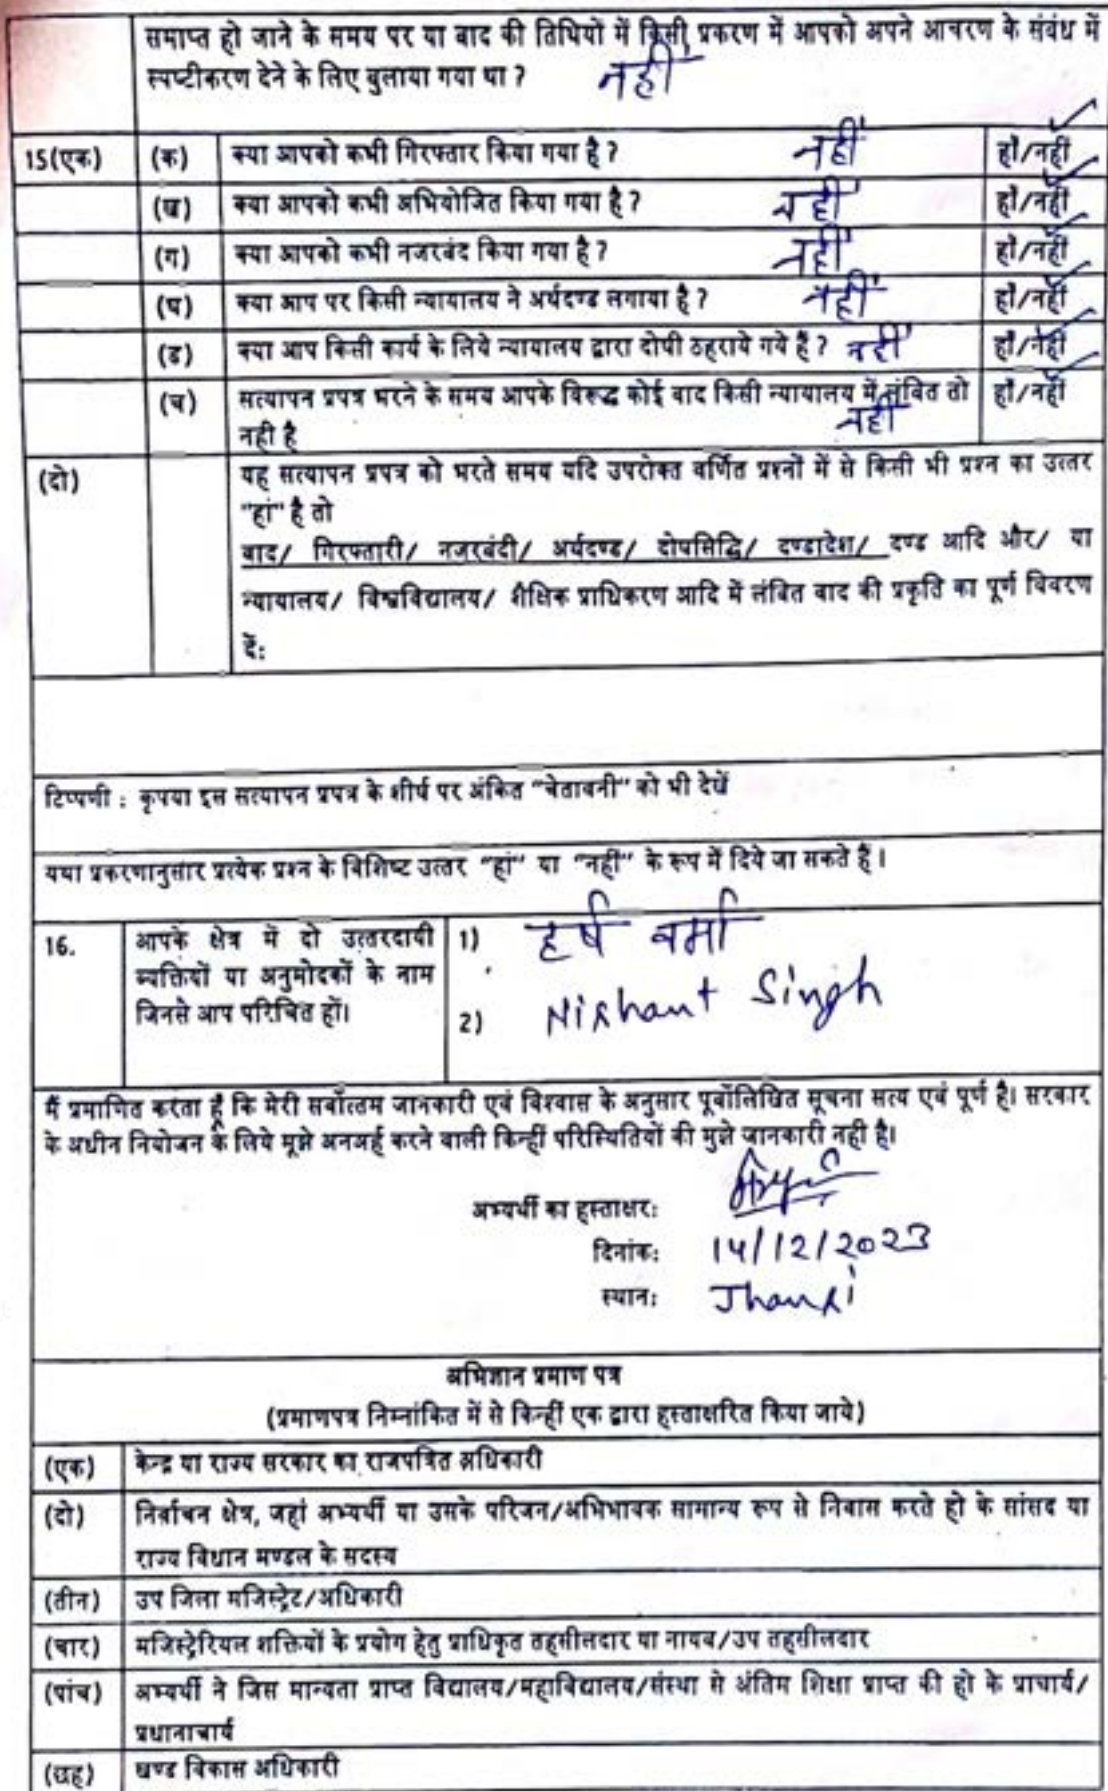 समाप्त हो जाने के समय पर या वाद की तिथियों में किसी प्रकरण में आपको अपने आचरण के संबंध में
स्पष्टीकरण देने के लिए बुलाया गया था ? नहीं
15(एक) (क) क्या आपको कभी गिरफ्तार किया गया है ? नहीं हाँ/नहीं
(ख) क्या आपको कभी अभियोजित किया गया है ? नहीं हाँ/नहीं
(ग) क्या आपको कभी नजरबंद किया गया है ? नहीं हाँ/नहीं
(घ) क्या आप पर किसी न्यायालय ने अर्थदण्ड लगाया है ? नहीं हाँ/नहीं
(ड) क्या आप किसी कार्य के लिये न्यायालय द्वारा दोषी ठहराये गये हैं ? नहीं हाँ/नहीं
(च) सत्यापन प्रपत्र भरने के समय आपके विरूद्ध कोई वाद किसी न्यायालय में लंवित तो हाँ/नहीं
नही है नहीं
(दो) यह सत्यापन प्रपत्र को भरते समय यदि उपरोक्त वर्णित प्रश्नों में से किसी भी प्रश्न का उत्तर
"हां" है तो
वाद/ गिरफ्तारी/ नजरबंदी/ अर्थदण्ड/ दोषसिद्धि/ दण्डादेश/ दण्ड आदि और/ या
न्यायालय/ विश्वविद्यालय/ शैक्षिक प्राधिकरण आदि में लंवित वाद की प्रकृति का पूर्ण विवरण
दें:
टिप्पणी : कृपया इस सत्यापन प्रपत्र के शीर्ष पर अंकित "चेतावनी" को भी देखें
यथा प्रकरणानुसार प्रत्येक प्रश्न के विशिष्ट उत्तर "हां" या "नहीं" के रूप में दिये जा सकते हैं।
16. आपके क्षेत्र में दो उत्तरदायी 1) हर्ष वर्मा
व्यक्तियों या अनुमोदकों के नाम
जिनसे आप परिचित हों। 2) Nishant Singh
मैं प्रमाणित करता हूँ कि मेरी सर्वोत्तम जानकारी एवं विश्वास के अनुसार पूर्वोलिखित सूचना सत्य एवं पूर्ण है। सरकार
के अधीन नियोजन के लिये मूझे अनअर्ह करने वाली किन्हीं परिस्थितियों की मुझे जानकारी नही है।
अभ्यर्थी का हस्ताक्षर:
दिनांक: 14/12/2023
स्थान: Jhansi
अभिज्ञान प्रमाण पत्र
(प्रमाणपत्र निम्नांकित में से किन्हीं एक द्वारा हस्ताक्षरित किया जाये)
(एक) केन्द्र या राज्य सरकार का राजपत्रित अधिकारी
(दो) निर्वाचन क्षेत्र, जहां अभ्यर्थी या उसके परिजन/अभिभावक सामान्य रूप से निवास करते हो के सांसद या
राज्य विधान मण्डल के सदस्य
(तीन) उप जिला मजिस्ट्रेट/अधिकारी
(चार) मजिस्ट्रेरियल शक्तियों के प्रयोग हेतु प्राधिकृत तहसीलदार या नायव/उप तहसीलदार
(पांच) अभ्यर्थी ने जिस मान्यता प्राप्त विद्यालय/महाविद्यालय/संस्था से अंतिम शिक्षा प्राप्त की हो के प्राचार्य/
प्रधानाचार्य
(छह) खण्ड विकास अधिकारी